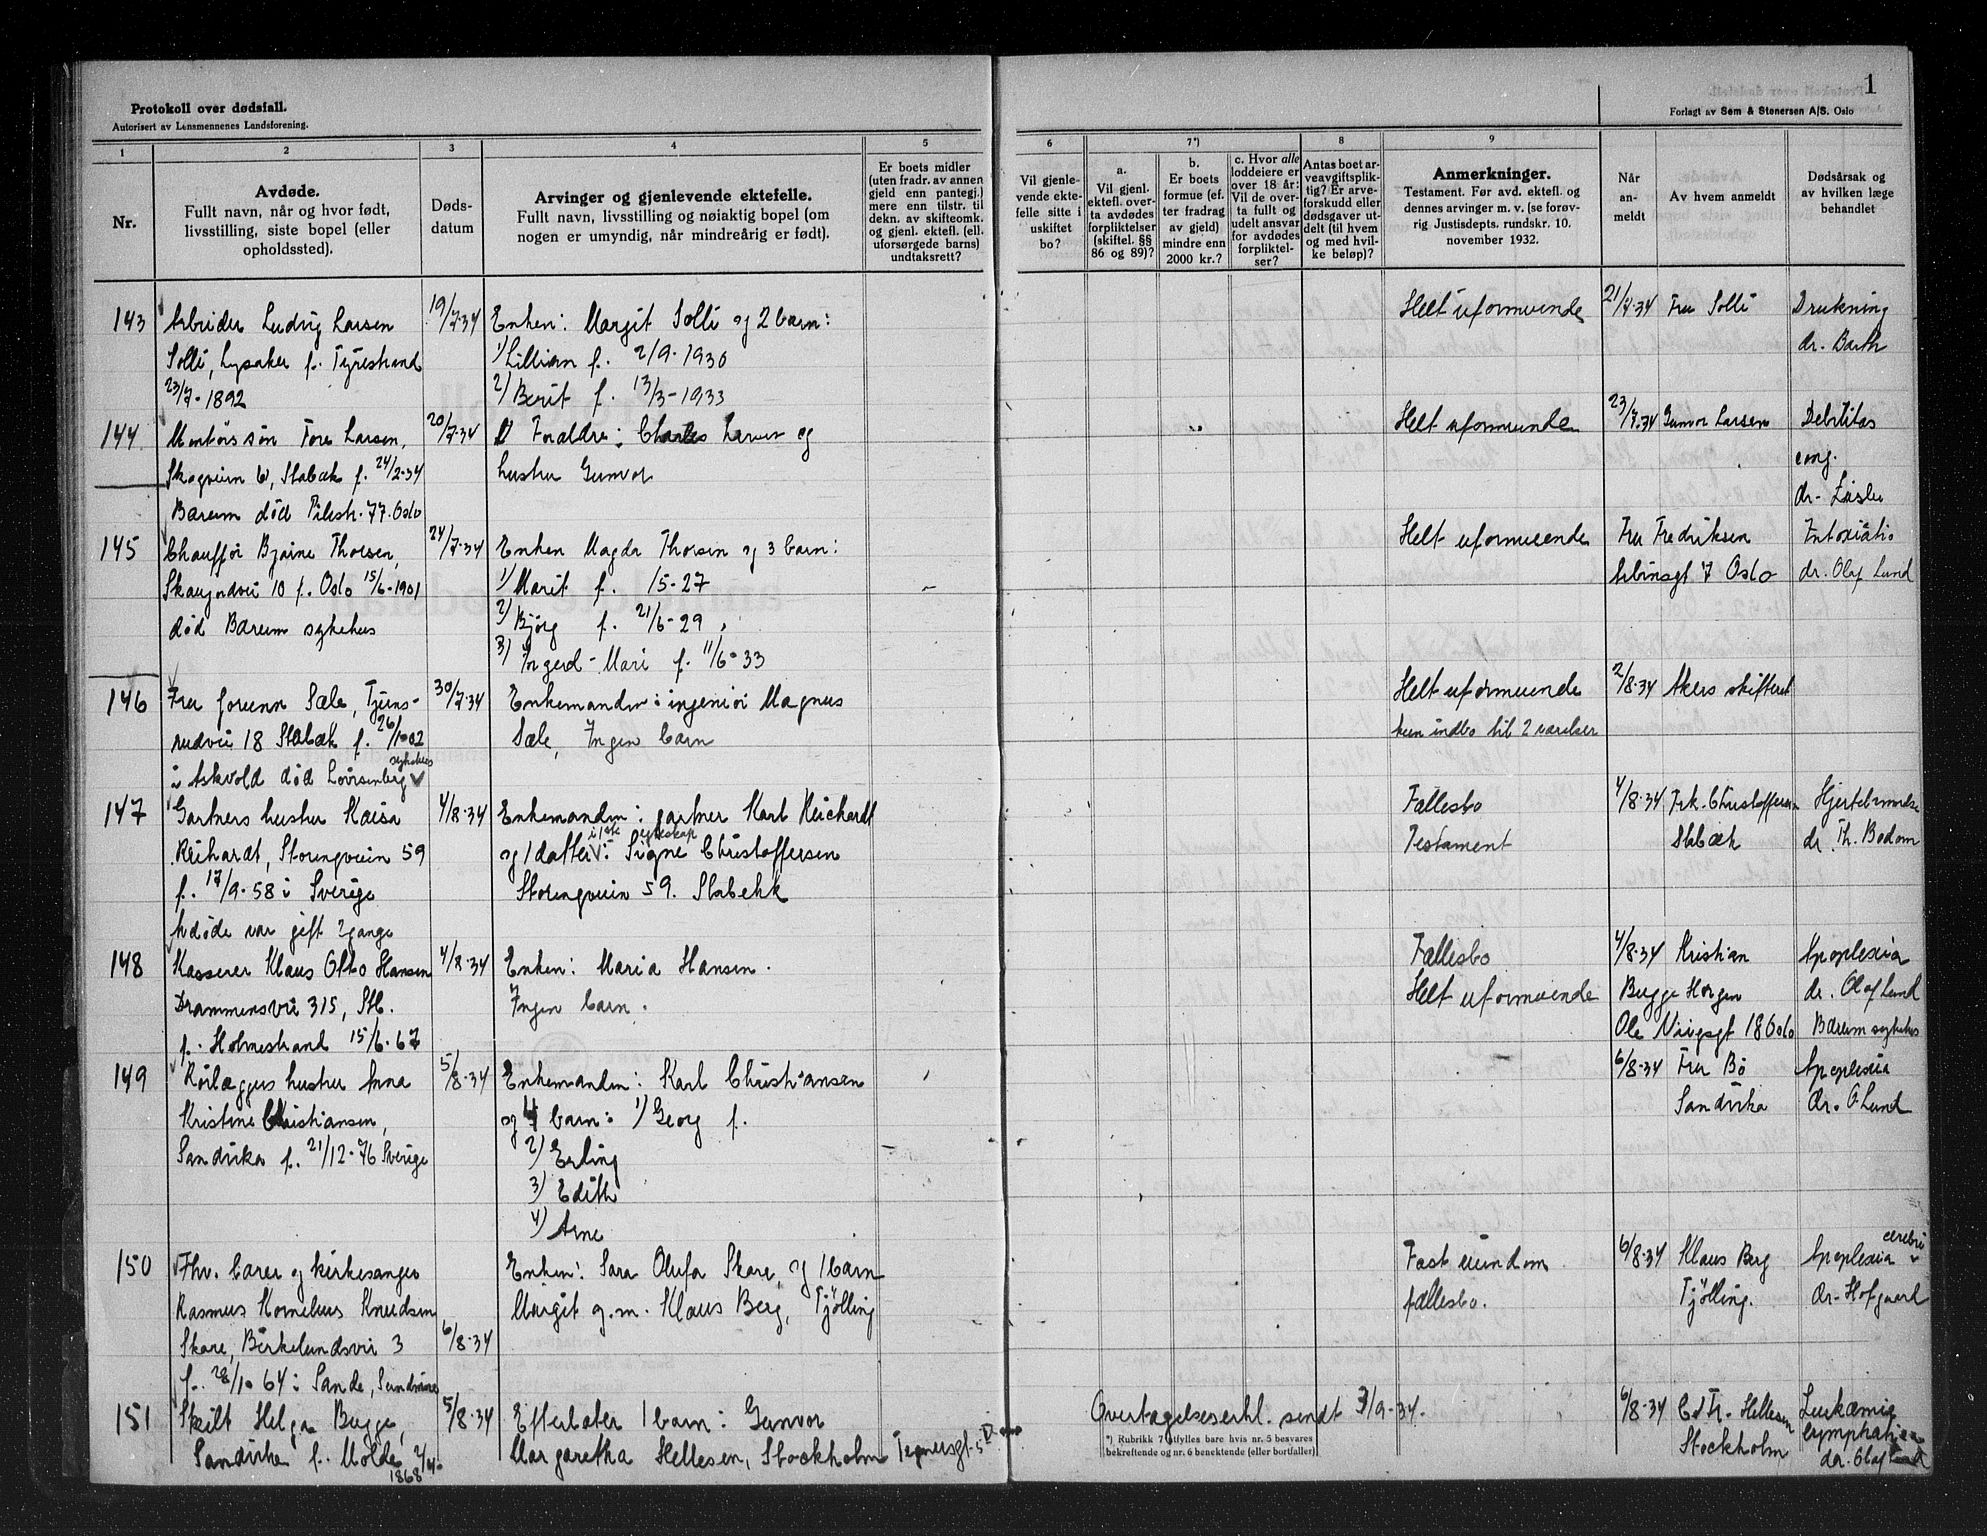 Protokoll over dødsfall.
Autorisert av Lensmennenes Landsforening.
1
Forlagt av Sem & Stenersen A/S. Oslo
1 2 3 4 5 6 7*) 8 9
Nr.
Avdøde.
Fullt navn, når og hvor født,
livsstilling, siste bopel (eller
opholdssted).
Døds-
datum
Arvinger og gjenlevende ektefelle.
Fullt navn, livsstilling og nøiaktig bopel (om
nogen er umyndig, når mindreårig er født).
Er boets midler
(uten fradr. av annen
gjeld enn pantegj.)
mere enn tilstr. til
dekn. av skifteomk.
og gjenl. ektefl. (ell.
uforsørgede barns)
undtaksrett?
Vil gjenle-
vende ekte-
felle sitte i
uskiftet
bo?
a.
Vil gjenl.
ektefl. over-
ta avdødes
forpliktelser
(skiftel. §§
86 og 89)?
b.
Er boets
formue (ef-
ter fradrag
av gjeld)
mindre enn
2000 kr.?
c. Hvor alle
loddeiere er
over 18 år:
Vil de over-
ta fullt og
udelt ansvar
for avdødes
forpliktel-
ser?
Antas boet ar-
veavgiftsplik-
tig? Er arve-
forskudd eller
dødsgaver ut-
delt (til hvem
og med hvil-
ke beløp)?
Anmerkninger.
Testament. Før avd. ektefl. og
dennes arvinger m. v. (se forøv-
rig Justisdepts. rundskr. 10.
november 1932.
Når
an-
meldt
Av hvem anmeldt
Dødsårsak og
av hvilken læge
behandlet
143 Arbeider Ludvig Larsen 19/7-34 Enken: Margit Solli og 2 barn: Helt uformuende 21/7-34 Fru Solli Drukning
Solli, Lysaker f. Tyristrand 1) Lillian f. 2/9-1930 dr. Barth
23/7-1892 2) Berit f. 13/3-1933
144 Montørs søn Tore Larsen, 20/7-34 Foraldre: Charles Larsen og Helt uformuende 23/7-34 Gunvor Larsen Debilitas
Skogveien 6, Stabæk f. 24/2-34 hustru Gunvor cong.
Bærum død Pilestr. 77. Oslo dr.
145 Chauffør Bjarne Thorsen, 24/7-34 Enken Magda Thorsen og 3 barn: Helt uformuende Fru Fredriksen
10 f. Oslo 15/6-1901 1) Marit f. 15-27 7 Oslo dr. Olaf Lund
død Bærum sykehus 2) Bjørg f. 21/6-29
3) Ingerd-Mari f. 11/6-33
146 Fru Jorunn Sæle, Tjuns- 30/7-34 Enkemanden: ingeniør Magnus Helt uformuende 2/8-34 Akers skifteret
rudvei 18 Stabæk f. 26/1-02 Sæle, Ingen barn kun indbo til 2 værelser
i Askvold død Lovisenberg sykehus
147 Gartners hustru Kaisa 4/8-34 Enkemanden: gartner Karl Reichardt Fællesbo 4/8-34 Frk. Christoffersen Hjertelammelse
Reichardt, Storengveien 59 og 1 datter i 1ste egteskap: Signe Christoffersen Testament Stabæk dr. Th. Bodom
f. 17/9-58 i Sverige Storengveien 59. Stabekk
Avdøde var gift 2 gange
148 Kasserer Klaus Otto Hansen 4/8-34 Enken: Maria Hansen. Fællesbo 4/8-34 Kristian Apoplexia
Drammensvei 315, Stb. Ingen barn. Helt uformuende Bugge Horgen dr. Olaf Lund
f. Holmestrand 15/6-67 Ole Vigsgt 18 Oslo Bærum sykehus
149 Rørlæggers hustru Anna 5/8-34 Enkemanden: Karl Christiansen 6/8-34 Fru Bø Apoplexia
Kristine Christiansen, og 4 barn: 1) Georg f. Sandvika dr. O. Lund
Sandvika f. 21/12-76 Sverige 2) Erling
3) Edith
4) Arne
150 Fhv. lærer og kirkesanger Enken: Sara Olufa Skare, og 1 barn Fast eiendom 6/8-34 Klaus Berg Apoplexia cerebri
Rasmus Kornelius Knudsen Margit g.m. Klaus Berg, Tjølling fællesbo. Tjølling. dr. Hofgaard
Skare, Birkelundsvei 3 6/8-34
f. 28/10 64 i Sande, Sundmøre
151 Skilt Helga Bugge, 5/8-34 Efterlater 1 barn: Gunvor Overtagelseserkl. sendt 3/9-34. 6/8-34 Hellesen Leukæmie
Sandvika f. Molde 1868 Margaretha Hellesen, Stockholm Tegnersgt. 5 Stockholm lymphatica
dr. Olaf Lund
*) Rubrikk 7 utfylles bare hvis nr. 5 besvares
bekreftende og nr. 6 benektende (eller bortfaller)